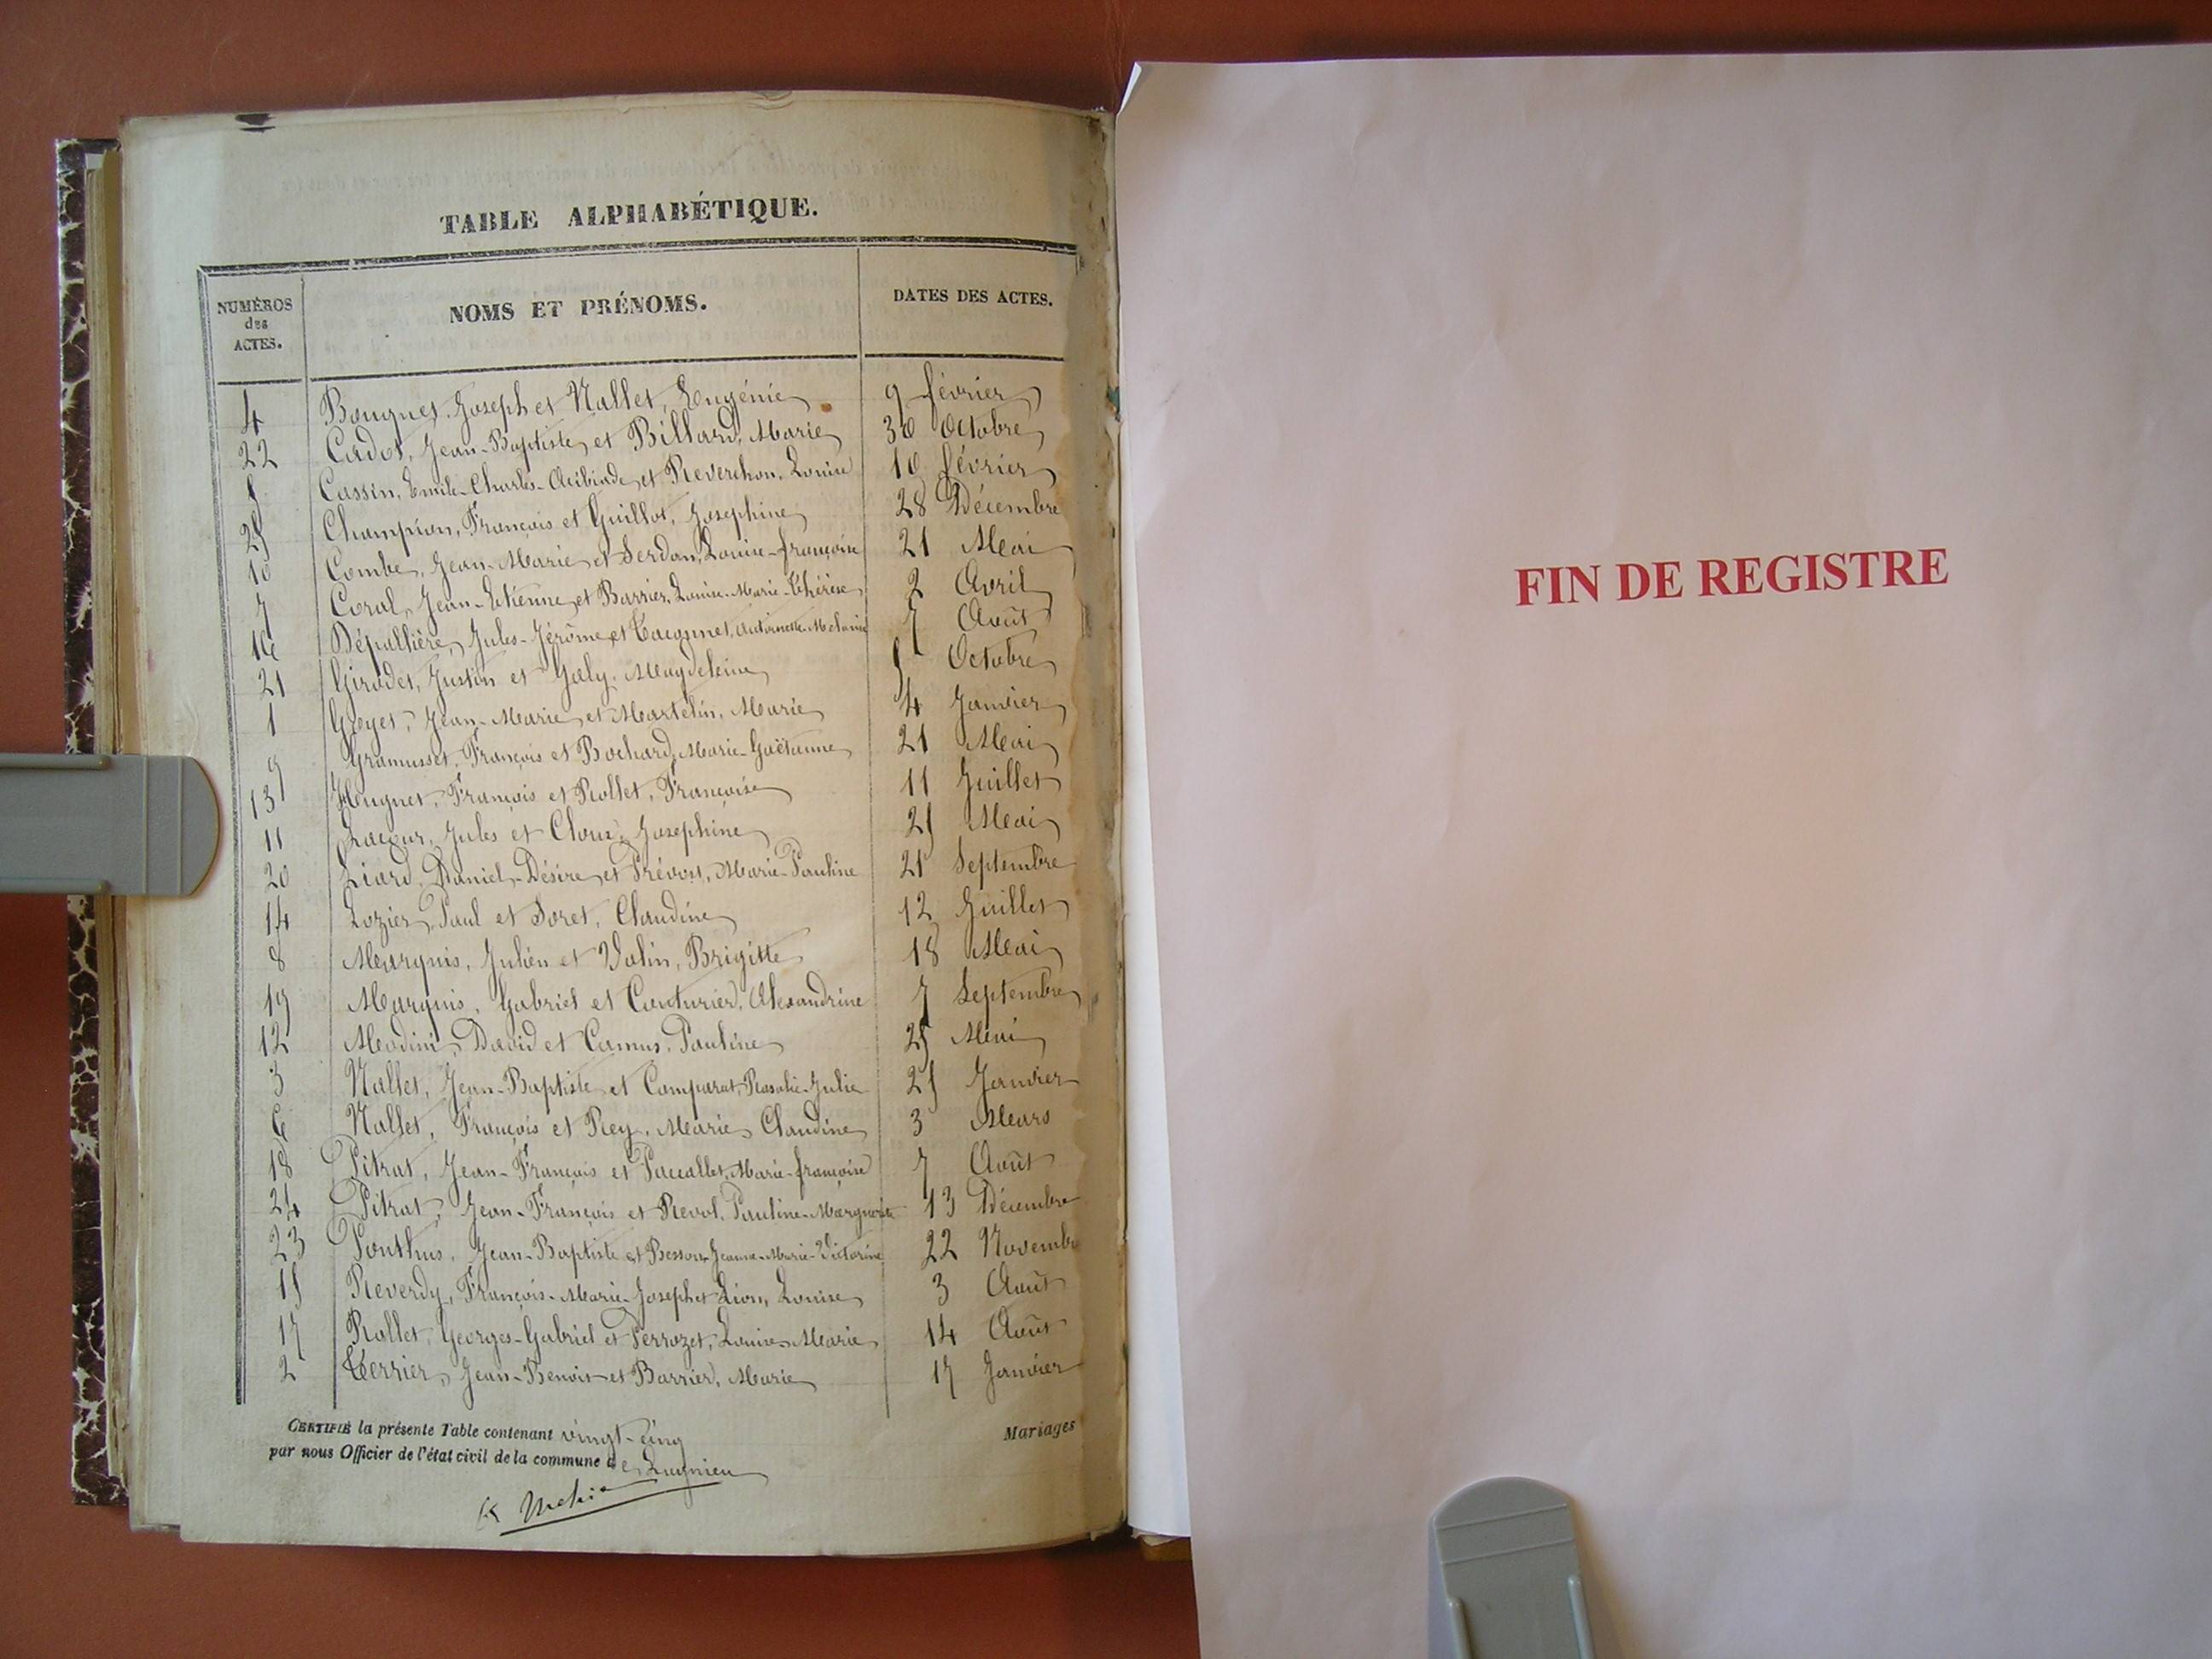 TABLE ALPHABÉTIQUE.
NUMÉROS
des
ACTES.
NOMS ET PRÉNOMS.
DATES DES ACTES.
4 Bouguet, Joseph et Nallet, Eugénie 9 février
22 Cadot, Jean-Baptiste et Billard, Marie 30 Octobre
5 Cassin, Emile-Charles-Alcibiade et Reverchon, Louise 10 février
25 Champion, François et Guillot, Josephine 28 Décembre
10 Combe, Jean-Marie et Serdon, Louise-françoise 21 Mai
7 Coral, Jean-Etienne et Barrier, Louise-Marie-Thérèse 2 Avril
16 Dépallière, Jules-Jérôme et Taconnet, Antoinette-Melanie 7 Août
21 Girodet, Justin et Galy, Magdeleine 5 Octobre
1 Goyet, Jean-Marie et Martelin, Marie 4 Janvier
9 Gramusset, François et Bochard, Marie-Gaëtanne 21 Mai
13 Huguet, François et Rollet, Françoise 11 Juillet
11 Lacour, Jules et Cloux, Josephine 25 Mai
20 Liard, Daniel-Désire et Prévost, Marie-Pauline 21 Septembre
14 Lozier, Paul et Soret, Claudine 12 Juillet
8 Marquis, Julien et Valin, Brigitte 18 Mai
19 Marquis, Gabriel et Couturier, Alexandrine 7 Septembre
12 Modini, David et Camus, Pauline 25 Mai
3 Nallet, Jean-Baptiste et Comparat, Rosalie-Julie 25 Janvier
6 Nallet, François et Rey, Marie Claudine 3 Mars
18 Pitrat, Jean-François et Paccallet, Marie-françoise 7 Août
24 Pitrat, Jean-François et Revol, Pauline-Marguerite 13 Décembre
23 Ponthus, Jean-Baptiste et Besson, Jeanne-Marie-Victorine 22 Novembre
15 Reverdy, François-Marie-Joseph et Lion, Louise 3 Août
17 Rollet, Georges-Gabriel et Perrozet, Louise Marie 14 Août
2 Terrier, Jean-Benoit et Barrier, Marie 17 Janvier
CERTIFIÉ la présente Table contenant vingt-cinq Mariages
par nous Officier de l'état civil de la commune de Lagnieu
FIN DE REGISTRE